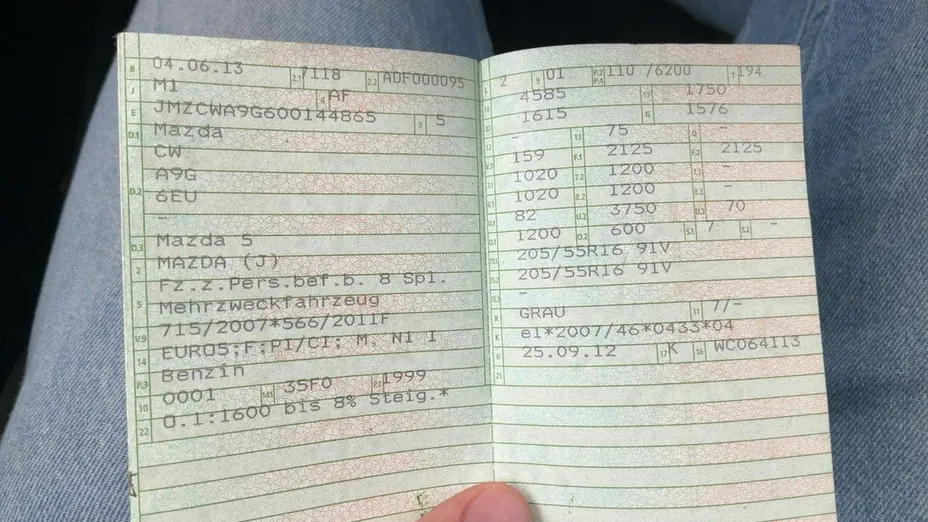 B 04.06.13 2.1 7118 2.2 ADF000095
J M1 4 AF
E JMZCWA9G600144865 3 5
D.1 Mazda
CW
D.2 A9G
6EU
-
D.3 Mazda 5
2 MAZDA (J)
Fz.z.Pers.bef.b. 8 Spl.
5 Mehrzweckfahrzeug
V.9 715/2007*566/2011F
14 EURO5;F;PI/CI; M, N1 I
P.3 Benzin
10 0001 14.1 35F0 P.1 1999
22 O.1:1600 bis 8% Steig.*
L 2 9 01 P.2 P.4 110 /6200 T 194
18 4585 19 1750
20 1615 G 1576
12 - 13 75 Q -
V.7 159 F.1 2125 F.2 2125
7.1 1020 7.2 1200 7.3 -
8.1 1020 8.2 1200 8.3 -
U.1 82 U.2 3750 U.3 70
O.1 1200 O.2 600 S.1 7 S.2 -
15.1 205/55R16 91V
15.2 205/55R16 91V
15.3 -
R GRAU 11 7/-
K e1*2007/46*0433*04
6 25.09.12 17 K 16 WC064113
21